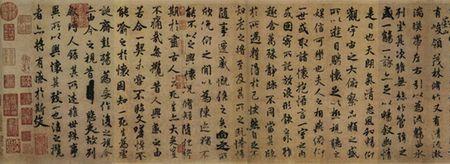 有峻領茂林脩竹又有清流激
湍暎帶左右引以為流觴曲水
列坐其次雖無絲竹管弦之
盛一觴一詠亦足以暢敘幽情
是日也天朗氣清惠風和暢仰
觀宇宙之大俯察品類之盛
所以遊目騁懷足以極視聽之
娛信可樂也夫人之相與俯仰
一世或取諸懷抱悟言一室之內
或因寄所託放浪形骸之外雖
趣舍萬殊靜躁不同當其欣
於所遇蹔得於己怏然自足不
知老之將至及其所之既惓情
隨事遷感慨係之矣向之所
欣俛仰之閒以為陳迹猶不
能不以之興懷況脩短隨化終
期於盡古人云死生亦大矣豈
不痛哉每攬昔人興感之由
若合一契未嘗不臨文嗟悼不
能喻之於懷固知一死生為虛
誕齊彭殤為妄作後之視今
亦由今之視昔悲夫故列
敘時人錄其所述雖世殊事
異所以興懷其致一也後之攬
者亦將有感於斯文